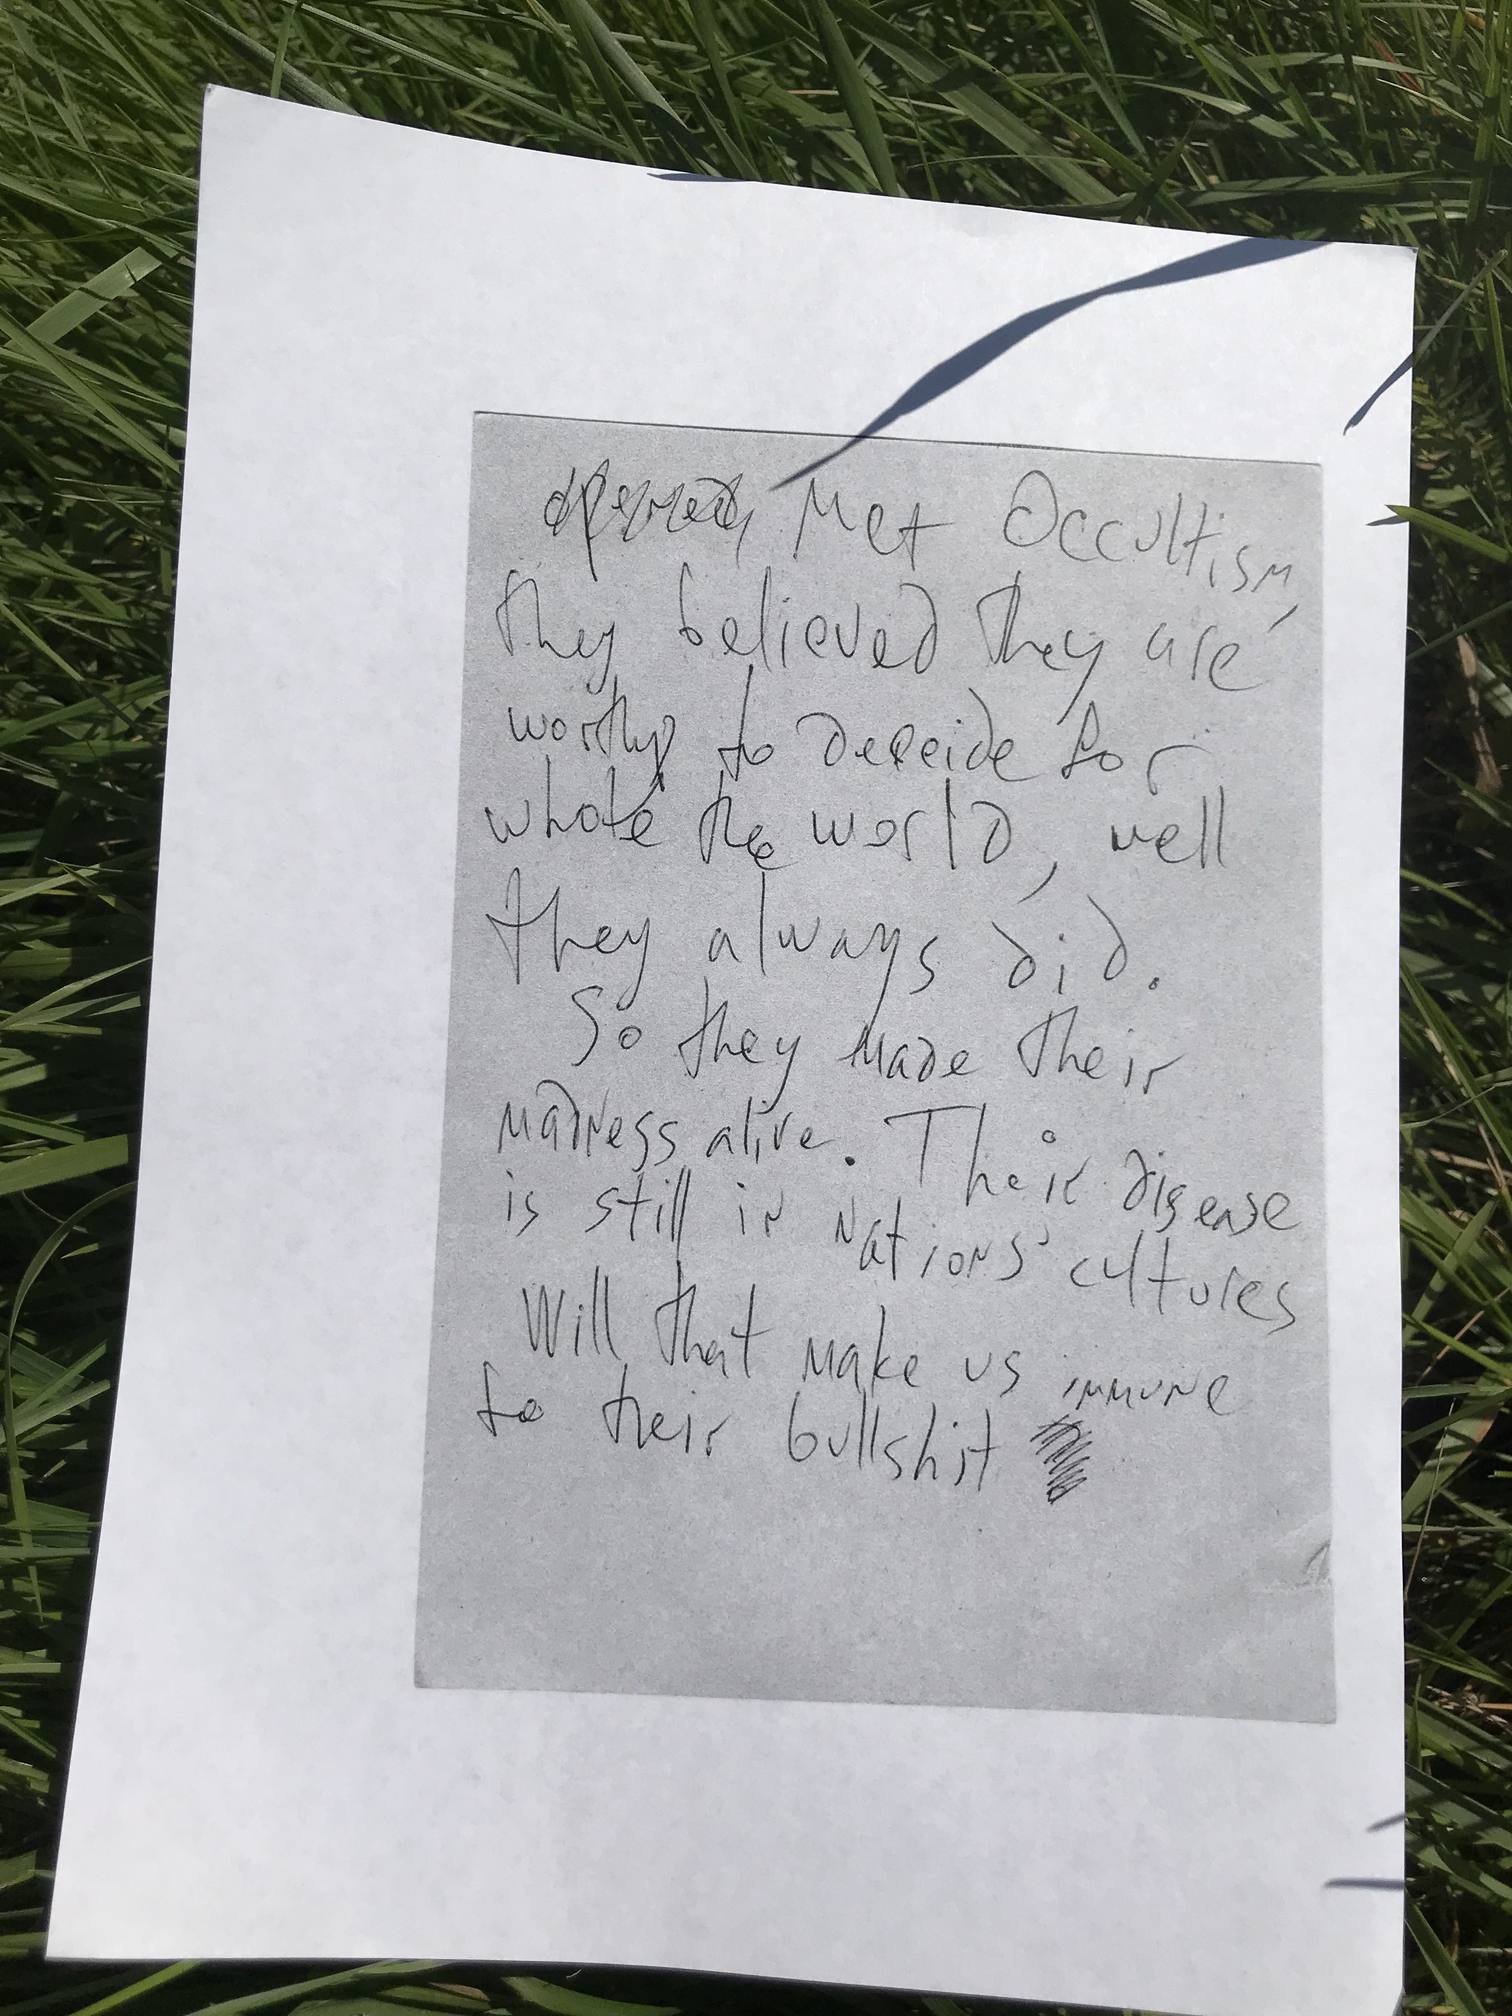 Met Occultism,
they believed they are
worthy to deceide for
whole the world, well
they always did.
So they made their
madness alive. Their disease
is still in Nations' cultures
Will that make us immune
to their bullshit